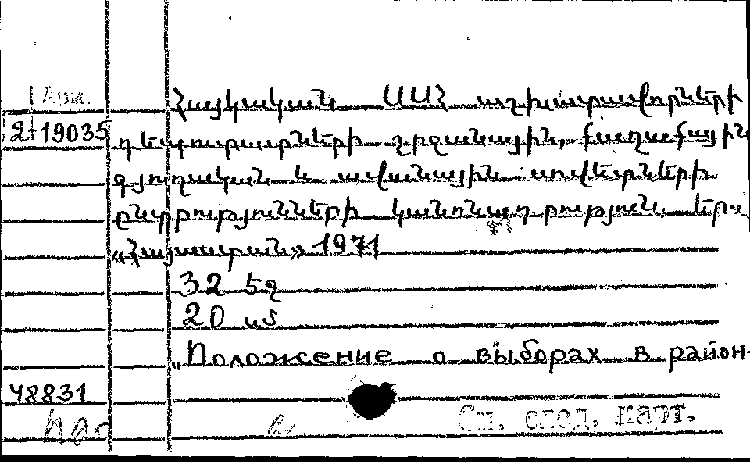 Арм.
Հայկական ՍՍՀ աշխատավորների
Զ+19035 դեպուտատների շրջանային, քաղաքային
գյուղական և ավանային սովետների
ընտրությունների կանոնադրություն. Եր.
«Հայաստան» 1971
32 էջ
20 սմ
„Положение о выборах в район-
48831
См. след. карт.